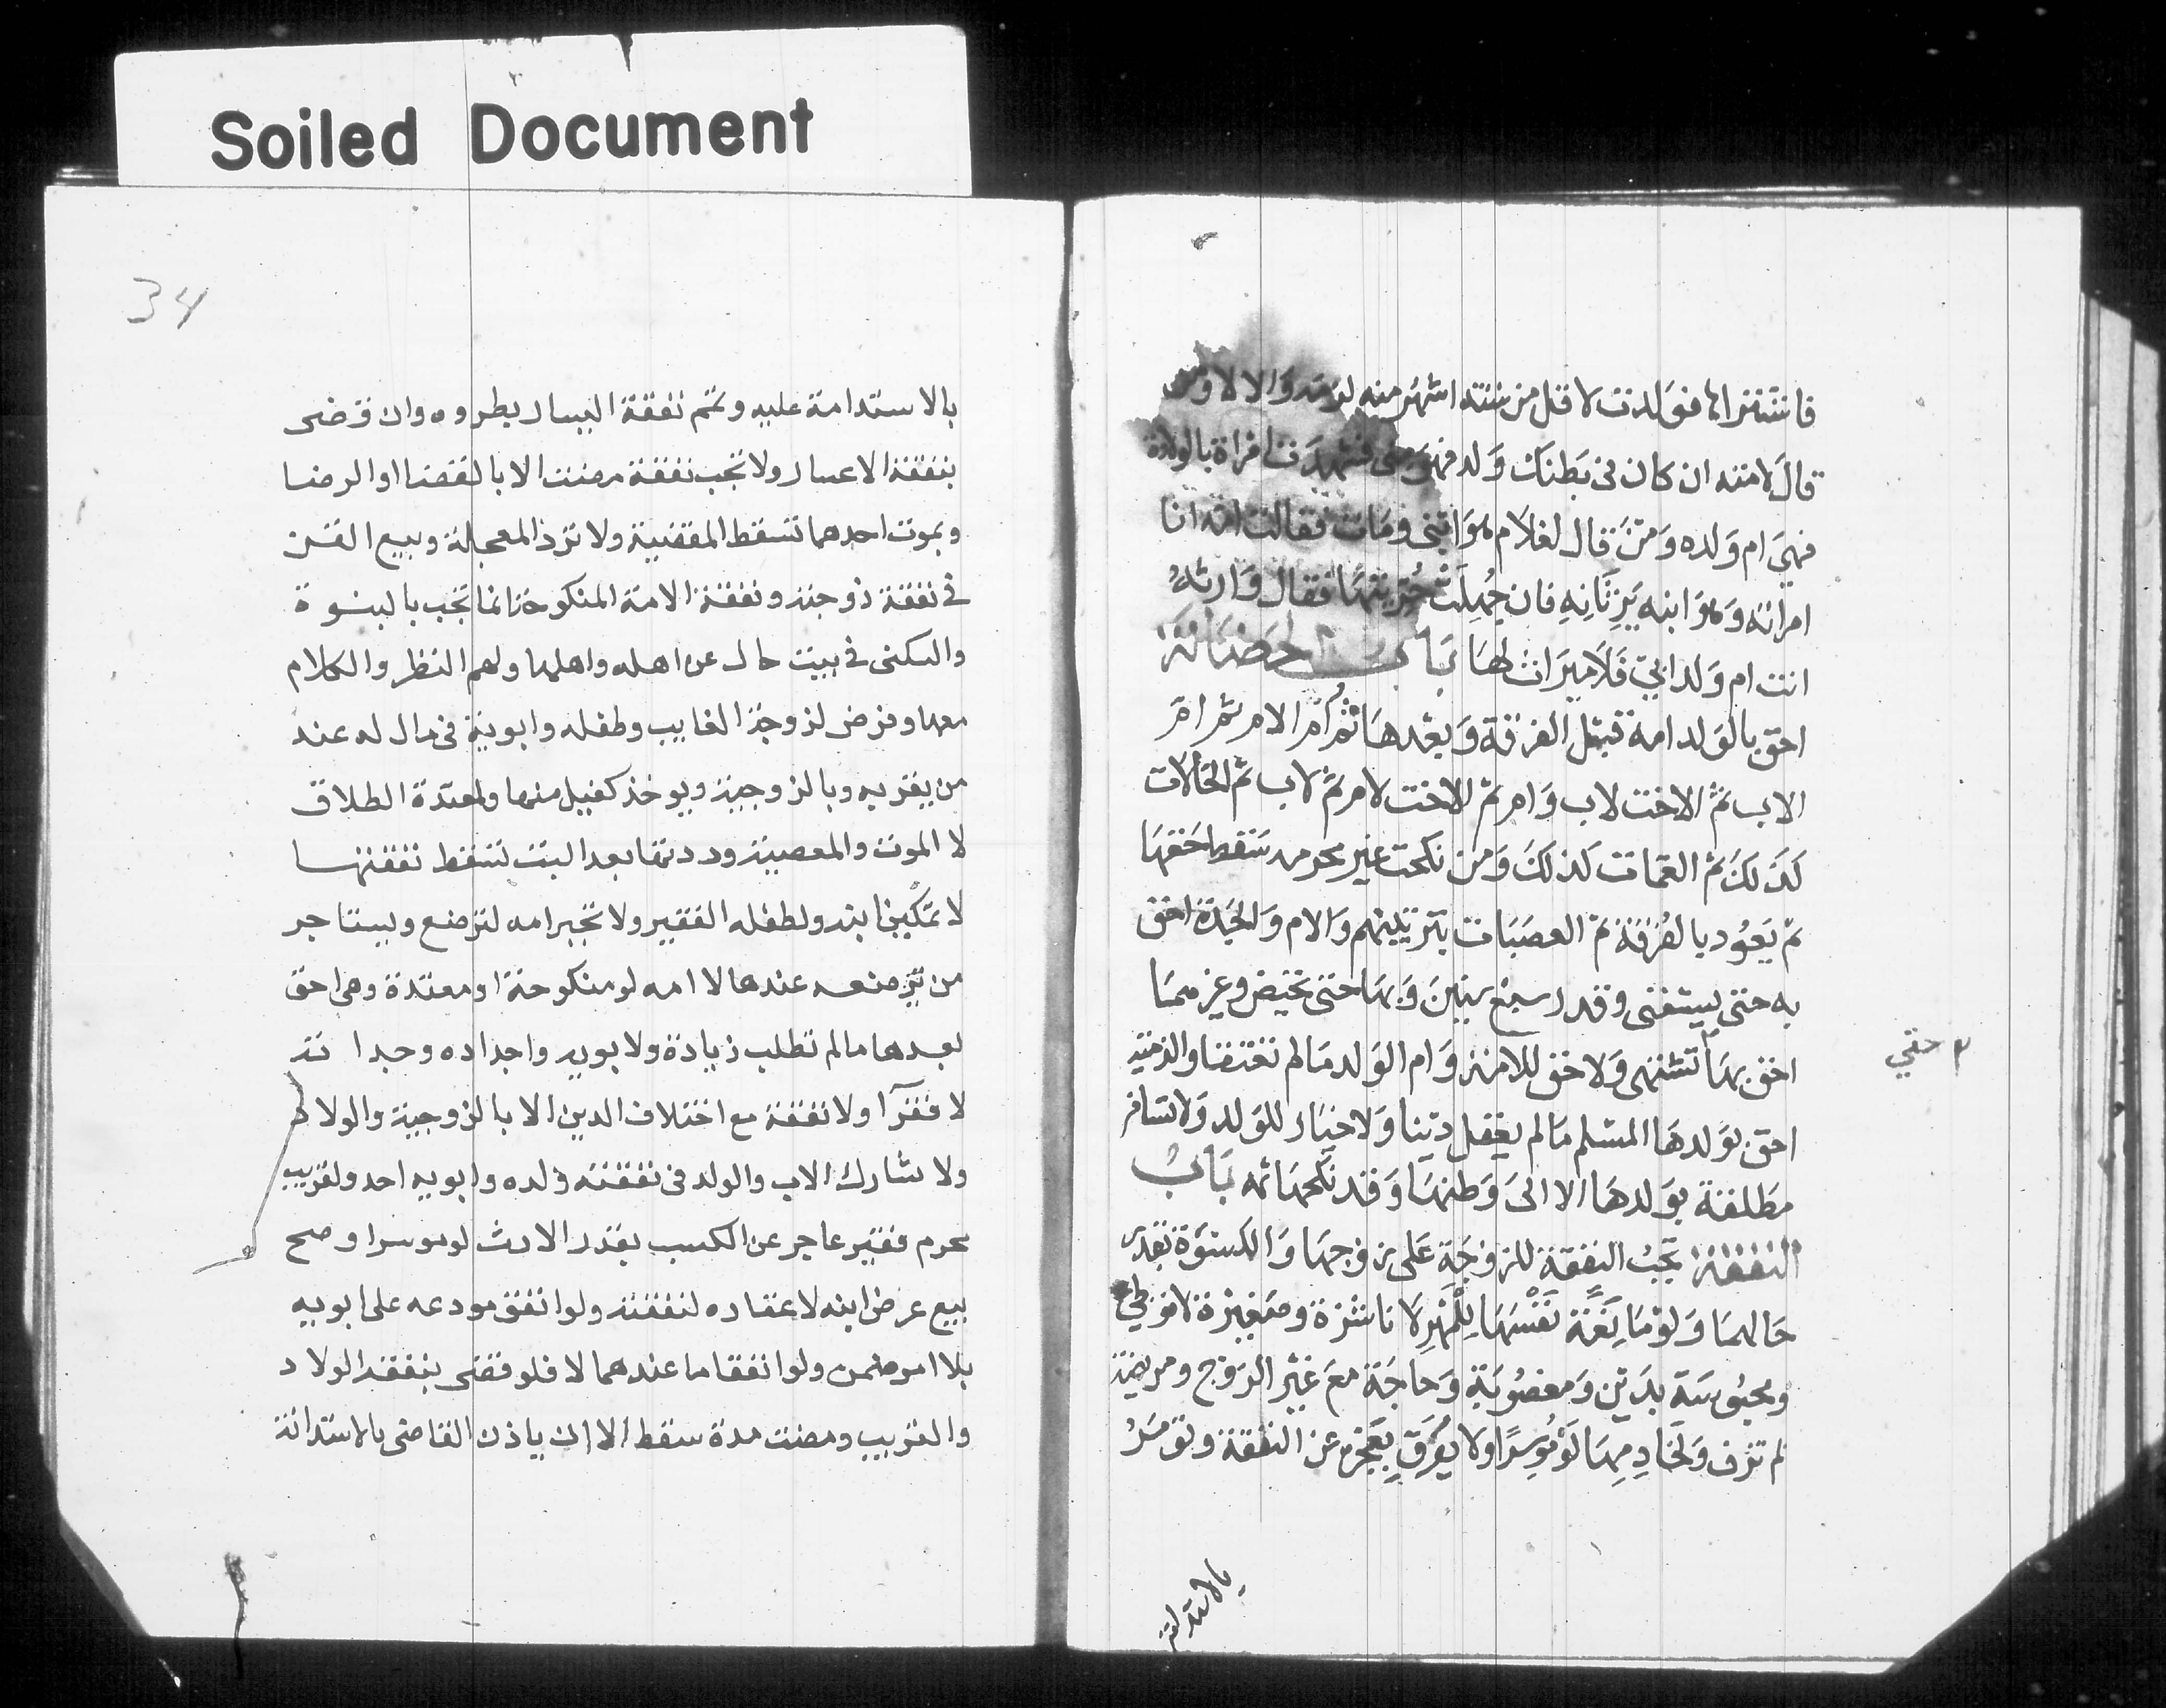 Soiled Document
فاشتراها فولدت لاقل من ستة اشهر منه لزمه والا لا ومن
قال لامته ان كان في بطنك ولد فهو مني فشهدت امراة بالولادة
فهي ام ولده ومن قال لغلام هو ابني ومات فقالت امه انا
امراته وهو ابنه يرثانه فان جهلت حريتها فقال وارثه
انت ام ولد ابي فلا ميراث لها باب الحضانة
احق بالولد امه قبل الفرقة وبعدها ثم ام الام ثم ام
الاب ثم الاخت لاب وام ثم الاخت لام ثم لاب ثم الخالات
كذلك ثم العمات كذلك ومن نكحت غير محرمه سقط حقها
ثم يعود بالفرقة ثم العصبات بترتيبهم والام والجدة احق
به حتى يستغني وقدر بسبع سنين وبها حتى تحيض وغيرهما
احق بها تشتهى ولا حق للامة وام الولد مالم تعتقا والذمية
احق بولدها المسلم مالم يعقل دينا ولا خيار للولد ولا تسافر
مطلقة بولدها الا الى وطنها وقد نكحها ثمه باب
النفقة تجب النفقة للزوجة على زوجها والكسوة بقدر
حالهما ولو مانعة نفسها للمهر لا ناشزة وصغيرة لا توطئ
ومحبوسة بدين ومغصوبة وحاجة مع غير الزوج ومريضة
لم تزف ولخادمها لو موسرا ولا يفرق بعجزه عن النفقة وتومر
بالاستدانة
حتي
34
بالاستدامة عليه وتتم نفقة اليسار يطروه وان قضى
بنفقة الاعسار ولا تجب نفقة مضت الا بالقضا او الرضا
وبموت احدهما تسقط المقضية ولا ترد المعجلة وبيع القن
في نفقة زوجته ونفقة الامة المنكوحة انما تجب بالبتوة
والسكنى في بيت خال عن اهله واهلها ولهم النظر والكلام
معها وفرض لزوجة الغايب وطفله وابويه في مال له عند
من يقر به وبالزوجية ويوخذ كفيل منها ولمعتدة الطلاق
لا الموت والمعصية وردتها بعد البت تسقط نفقتها
لا تمكين ابنه ولطفله الفقير ولا تجبر امه لترضع ويستاجر
من ترضعه عندها لا امه لو منكوحة او معتدة وهي احق
بعدها مالم تطلب زيادة ولابويه واجداده وجداته
لا فقرآ ولا نفقة مع اختلاف الدين الا بالزوجية والولاد
ولا يشارك الاب والولد في نفقته ولده وابويه احد ولقريب
محرم فقير عاجز عن الكسب بقدر الارث لو موسرا وصح
بيع عرض ابنه لا عقاره لنفقته ولو انفق مودعه على ابويه
بلا امر ضمن ولو انفقا ما عندهما لا فلو قضى بنفقة الولاد
والقريب ومضت مدة سقط الا ان ياذن القاضي بالاستدانة